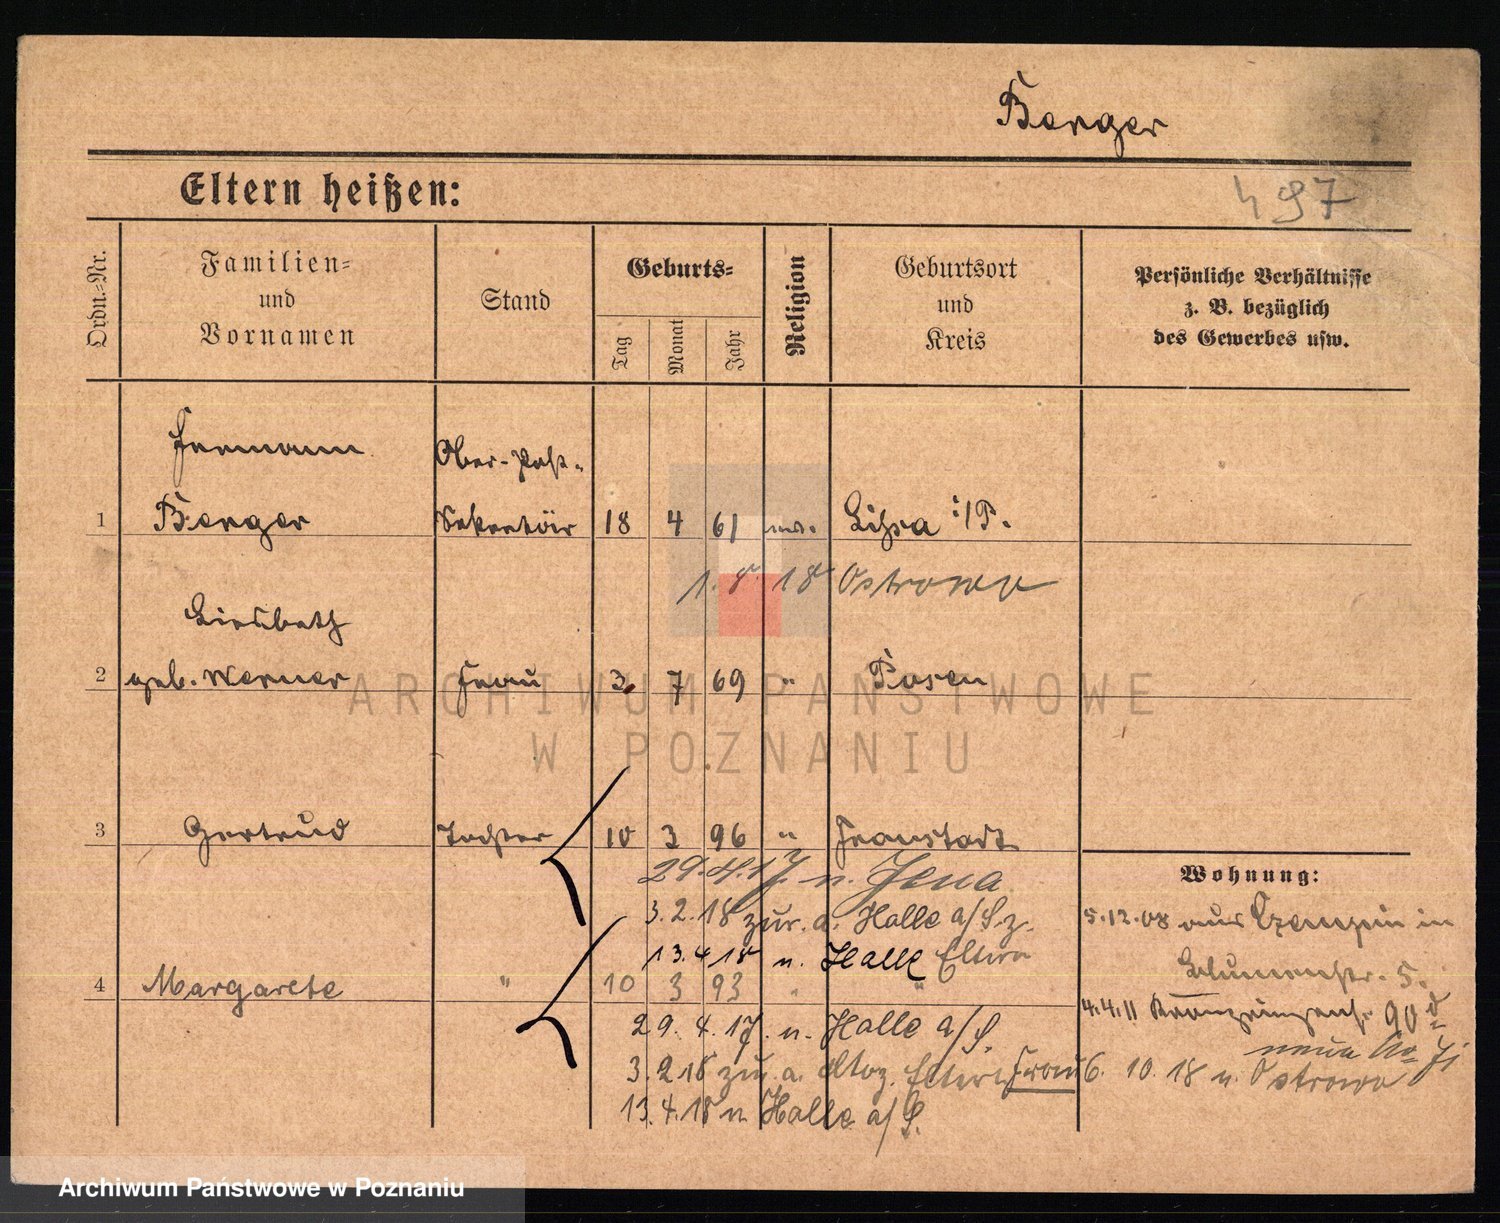 Berger
Eltern heißen:
497
Ordn.-Nr.
Familien-
und
Vornamen
Stand
Geburts-
Tag
Monat
Jahr
Religion
Geburtsort
und
Kreis
Persönliche Verhältnisse
z. B. bezüglich
des Gewerbes usw.
Hermann
Ober-Post-
1 Berger Sekretär 18 4 61 Lissa i/P.
1. 8. 18 Ostrowo
Liesbeth
2 geb. Werner Frau 3. 7 69 " Posen
3 Gertrud Tochter 10 3 96 " Fraustadt
29.4.17. n. Jena
Wohnung:
3.2.18 zur. a. Halle a/S. z.
5.12.08 aus Czempin in
13.4.18 n. Halle Eltern
Blumenstr. 5.
4 Margarete " 10 3 93 " "
4.4.11 90
29. 4. 17. n. Halle a/S.
neue No
3.2.18 zu. a. Eltern Frau 6. 10. 18 n. Ostrowo
13.4.18 n Halle a/S.
ARCHIWUM PAŃSTWOWE
W POZNANIU
Archiwum Państwowe w Poznaniu